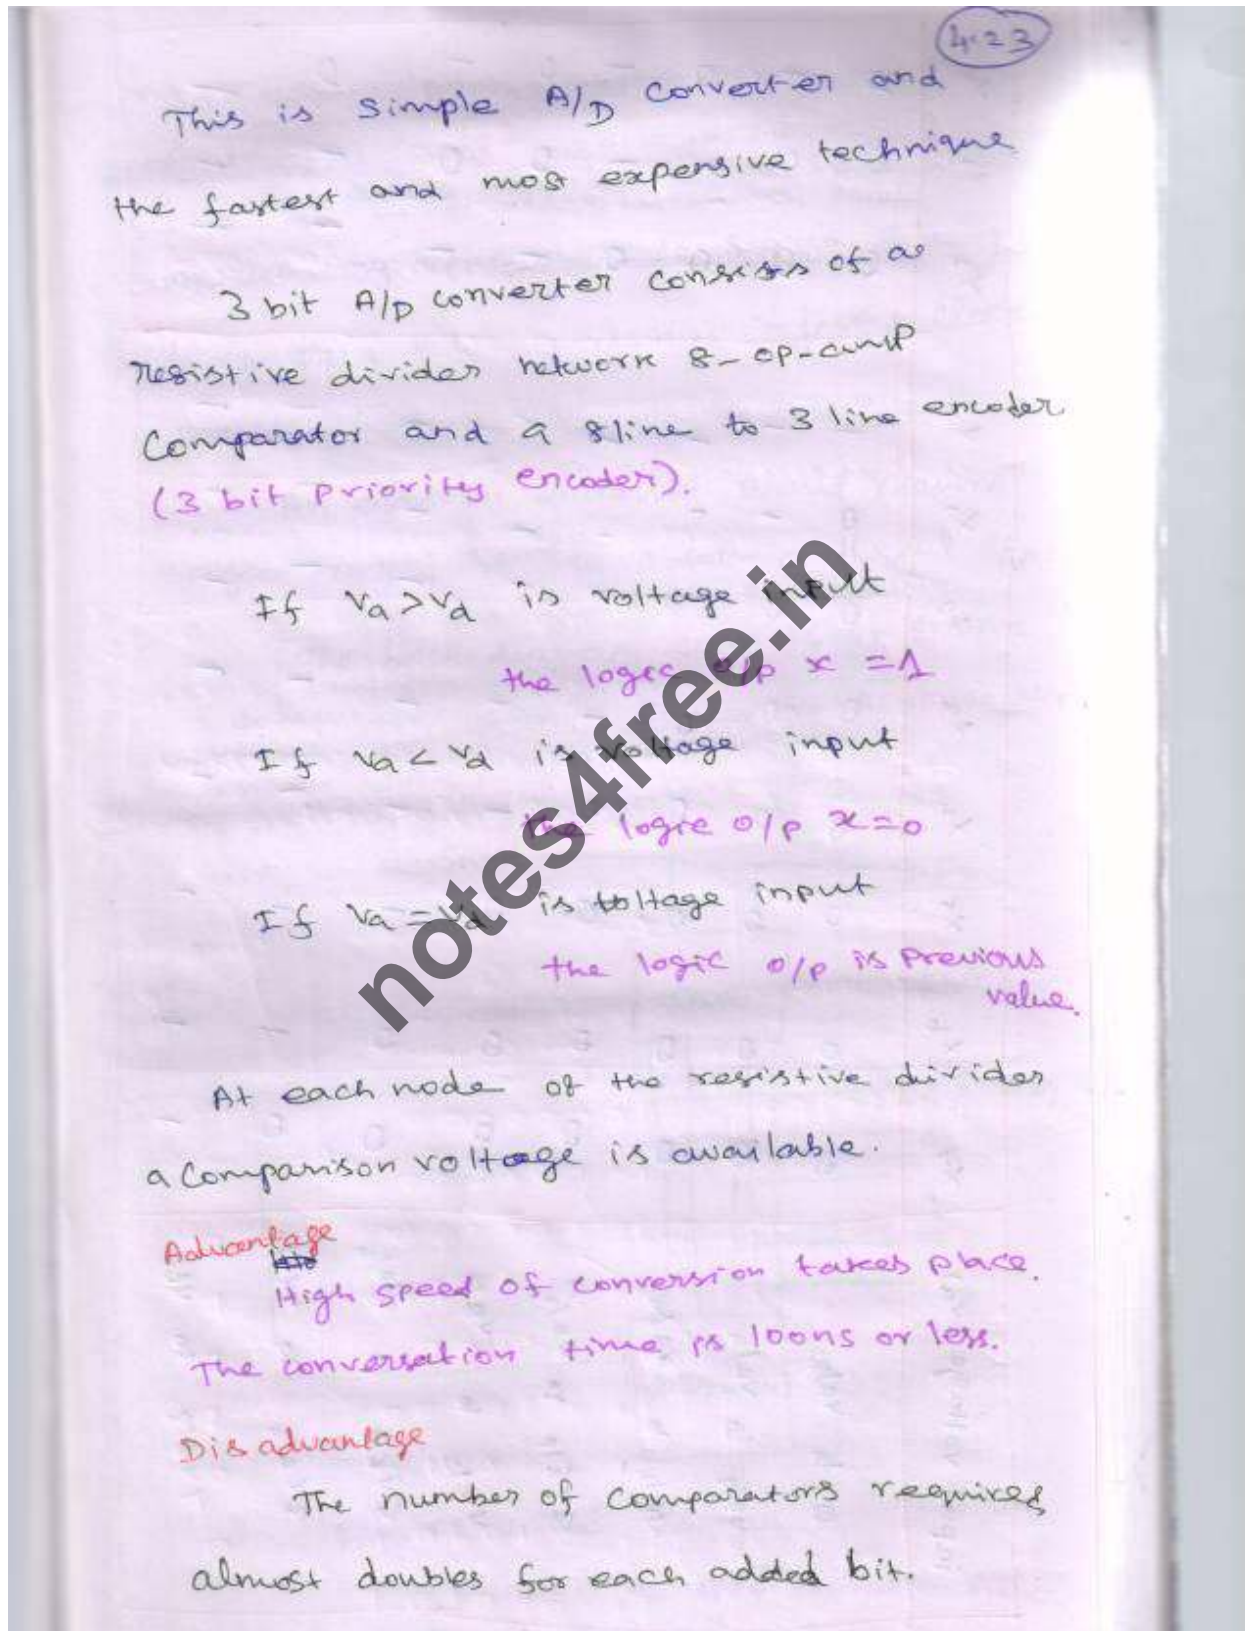 4.23
This is Simple A/D Converter and
the fastest and most expensive technique
3 bit A/D converter consists of a
resistive divider network 8-op-amp
Comparator and a 8line to 3 line encoder
(3 bit Priority encoder).
If Va > Vd is voltage input
the logic o/p x = 1
If Va < Vd is voltage input
the logic o/p x = 0
If Va = Vd is voltage input
the logic o/p is Previous
value.
At each node of the resistive divider
a Comparison voltage is available.
Advantage
High speed of conversion takes place.
The conversation time is 100ns or less.
Disadvantage
The number of comparators required
almost doubles for each added bit.
notes4free.in